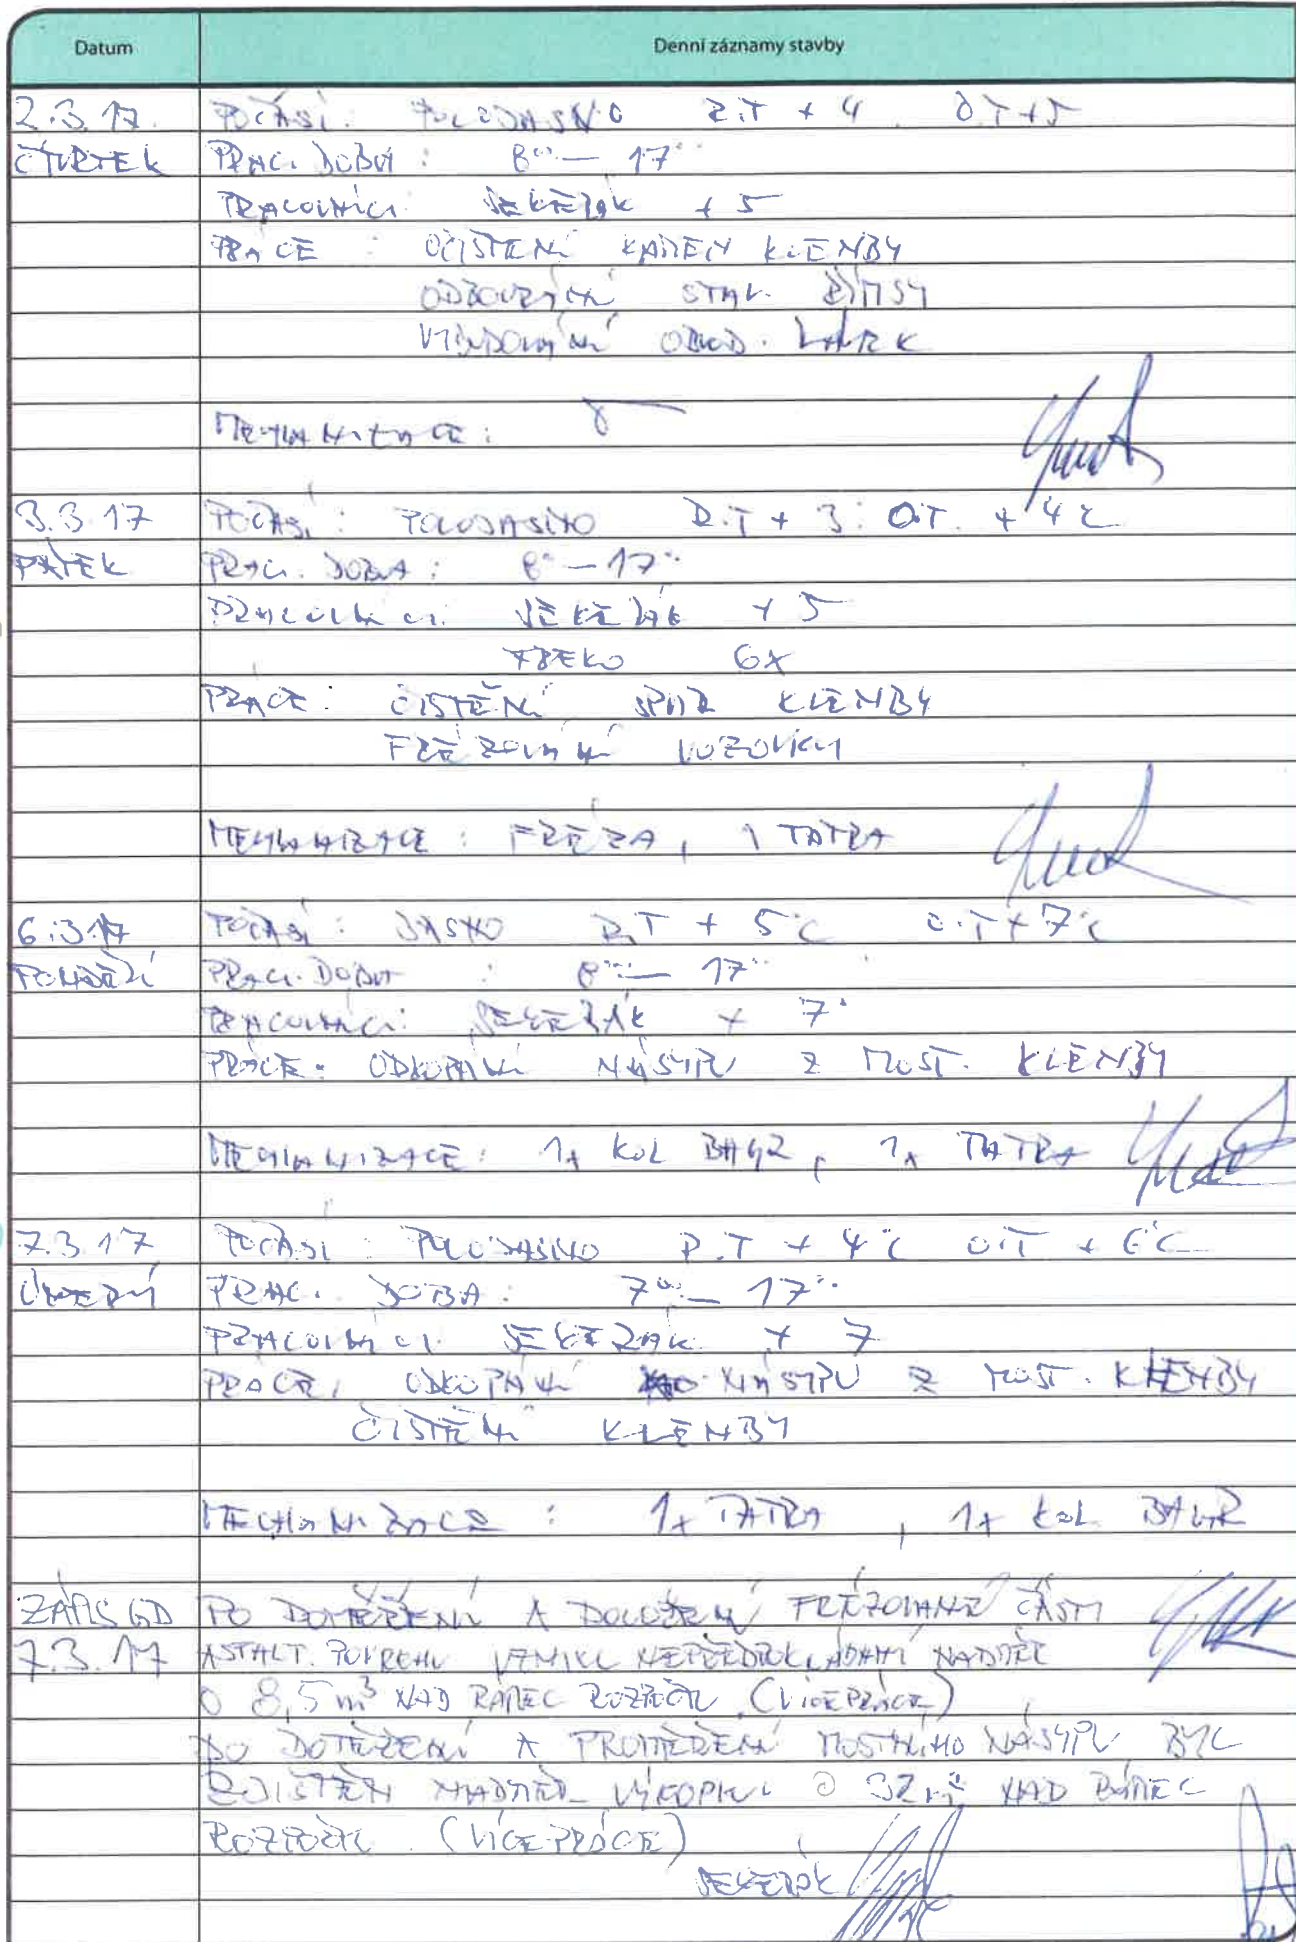 Datum Denní záznamy stavby
2.3.17. POČASÍ: POLOJASNO R.T + 4 O.T + 5
ČTVRTEK PRAC. DOBA: 8⁰⁰ — 17⁰⁰
PRACOVNÍCI: SEKERÁK + 5
PRÁCE : OČIŠTĚNÍ KAMEN KLENBY
ODBOURÁNÍ STÁV. ŘÍMSY
VYBUDOVÁNÍ
MECHANIZACE:
3.3.17 POČASÍ: POLOJASNO R.T + 3 O.T. + 4°C
PÁTEK PRAC. DOBA: 8⁰⁰ — 17⁰⁰
PRACOVNÍCI: SEKERÁK + 5
6X
PRÁCE: ČISTĚNÍ SPÁR KLENBY
FRÉZOVÁNÍ VOZOVKY
MECHANIZACE: FRÉZA, 1 TATRA
6.3.17 POČASÍ: JASNO R.T + 5°C O.T + 7°C
PONDĚLÍ PRAC. DOBA : 8⁰⁰ — 17⁰⁰
PRACOVNÍCI: SEKERÁK + 7
PRÁCE: ODKOPÁNÍ NÁSYPU Z MOST. KLENBY
MECHANIZACE: 1x KOL BAGR, 1x TATRA
7.3.17 POČASÍ: POLOJASNO R.T + 4°C O.T + 6°C
ÚTERÝ PRAC. DOBA: 7⁰⁰ — 17⁰⁰
PRACOVNÍCI SEKERÁK + 7
PRÁCE: ODKOPÁNÍ NÁSYPU Z MOST. KLENBY
ČISTĚNÍ KLENBY
MECHANIZACE : 1x TATRA, 1x KOL BAGR
ZÁPIS GD PO DOTĚŽENÍ A DOLOŽENÍ FRÉZOVANÉ ČÁSTI
7.3.17 ASFALT. POVRCHU VZNIKL NEPŘEDPOKLÁDANÝ NADMĚR
O 8,5 m³ NAD RÁMEC ROZPOČTU (VÍCEPRÁCE)
PO DOTĚŽENÍ A PROMĚŘENÍ MOSTNÍHO NÁSYPU BYL
ZJIŠTĚN NADMĚR VÝKOPKU O 32 m³ NAD RÁMEC
ROZPOČTU (VÍCEPRÁCE)
SEKERÁK